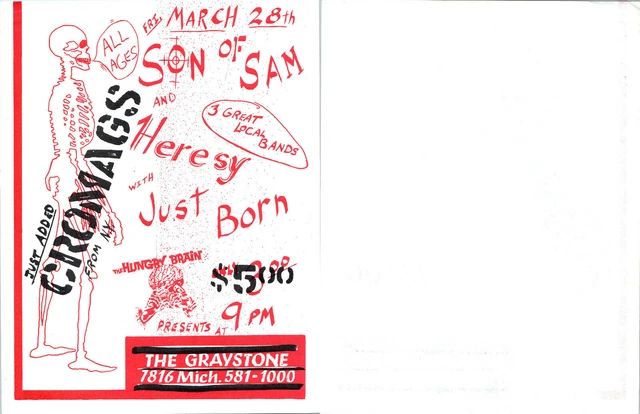 FRI. MARCH 28th
ALL
AGES
SON OF SAM
AND
3 GREAT
LOCAL
BANDS
Heresy
WITH
Just Born
JUST ADDED
CROMAGS
FROM NY
THE HUNGRY BRAIN
$5.00
PRESENTS AT 9 PM
THE GRAYSTONE
7816 Mich. 581-1000